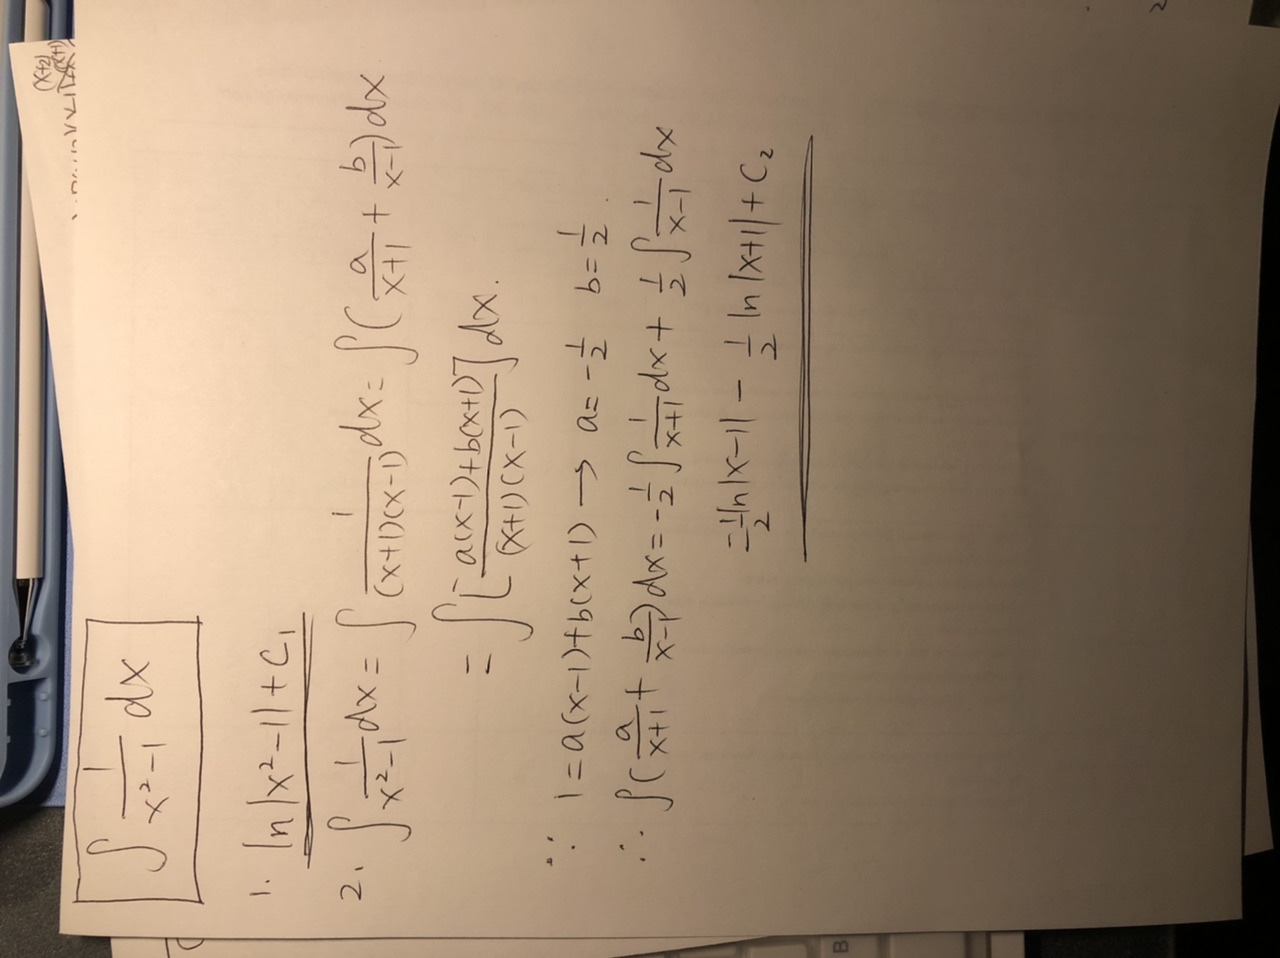 ∫ 1/(x²-1) dx
1. ln|x²-1|+C₁
2. ∫ 1/(x²-1) dx = ∫ 1/((x+1)(x-1)) dx = ∫ (a/(x+1) + b/(x-1)) dx
= ∫ [a(x-1)+b(x+1)]/((x+1)(x-1)) dx.
∵ 1=a(x-1)+b(x+1) → a=-1/2 b=1/2.
∴ ∫ (a/(x+1) + b/(x-1)) dx = -1/2 ∫ 1/(x+1) dx + 1/2 ∫ 1/(x-1) dx
= 1/2 ln|x-1| - 1/2 ln|x+1| + C₂
(x+2)
(x+1)
B